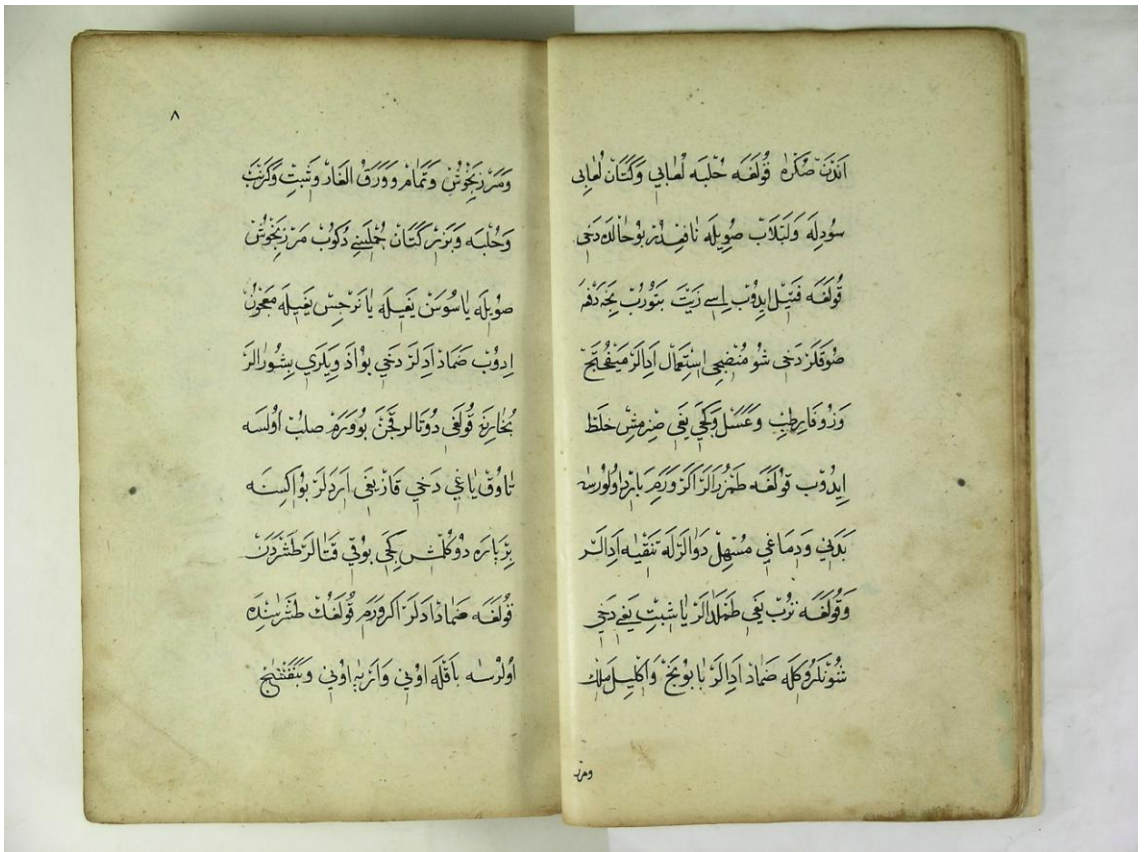 اَنْدَنْ صُكْرَهْ قُولَغَه حُلْبَه لُعَابِي وَكَتَانْ لُعَابِى
سُودِلَه وَلَبْلَابْ صُويِلَه نَافِعْدُرْ بُو حَالْدَه دَخِى
قُولَغَه فَتِيلْ ايِدُوبْ اِسِى زَيْتَ بَتُورُبْ
صُوقَلَرْ دَخِى شُو مُنْضِجِى اِسْتِعْمَالْ اَدَالَرْ مَيْفُخْتَجْ
وَزُوفَا رَطِبْ وَعَسَلْ وَكَجِى يَغِى صِزمِشْ خَلْطْ
ايِدُوبْ قُولَغَه طَمْزُرَالَرْ اَكَرْ وَرَمْ بَارِدْ اُولُورْسَه
بَدَنِى وَدِمَاغِي مُسْهِلْ دَوَالَرْلَه تَنْقِيَه اَدَالَرْ
وَقُولَغَه تُرُبْ يَغِي طَمْلَدَالَرْ يَا شِبِتْ يَغِى دَخِي
شُونَكَرُوكَلَه ضَمَادْ اَدَالَرْ بَابُونَجْ وَاِكْلِيلْ مَلِكْ
ومرز
٨
وَمَرْزَنْجُوشْ وَنَمَّامْ وَوَرَقُ الْغَارْ وَشِبِتْ وَكَرْنَبْ
وَحُلْبَه وَبَزْرِ كَتَانْ جُمْلَسِنِى دُكُوبْ مَرْزَنْجُوشْ
صُويِلَه يَا سُوسَنْ يَغِيلَه يَا نَرْجِسْ يَغِيلَه مَعْجُونْ
اِدُوبْ ضَمَادْ اَدَلَرْ دَخِي بُو اَدْوِيَلَرِي بِشُورَالَرْ
بُخَارِنَه قُولَغِى دُوتَالَرْ قَچَنْ بُو وَرَمْ صُلْبْ اُولْسَه
تَاوُقْ يَاغِي دَخِي قَازْ يَغِى اَرِدَلَرْ بُو اِكِسِنَه
بِرْ پَارَه دُوكُلْمِشْ كَجِى بُويْنِى قَتَالَرْ طَشْرَدَنْ
قُولَغَه ضَمَادْ اَدَلَرْ اَكَرْ وَرَمْ قُولَغُكْ طَشْرَسِنْدَه
اُولُرْسَه بَاقْلَه اُونِي وَاَرْپَه اُونِي وَبَنَفْشَج